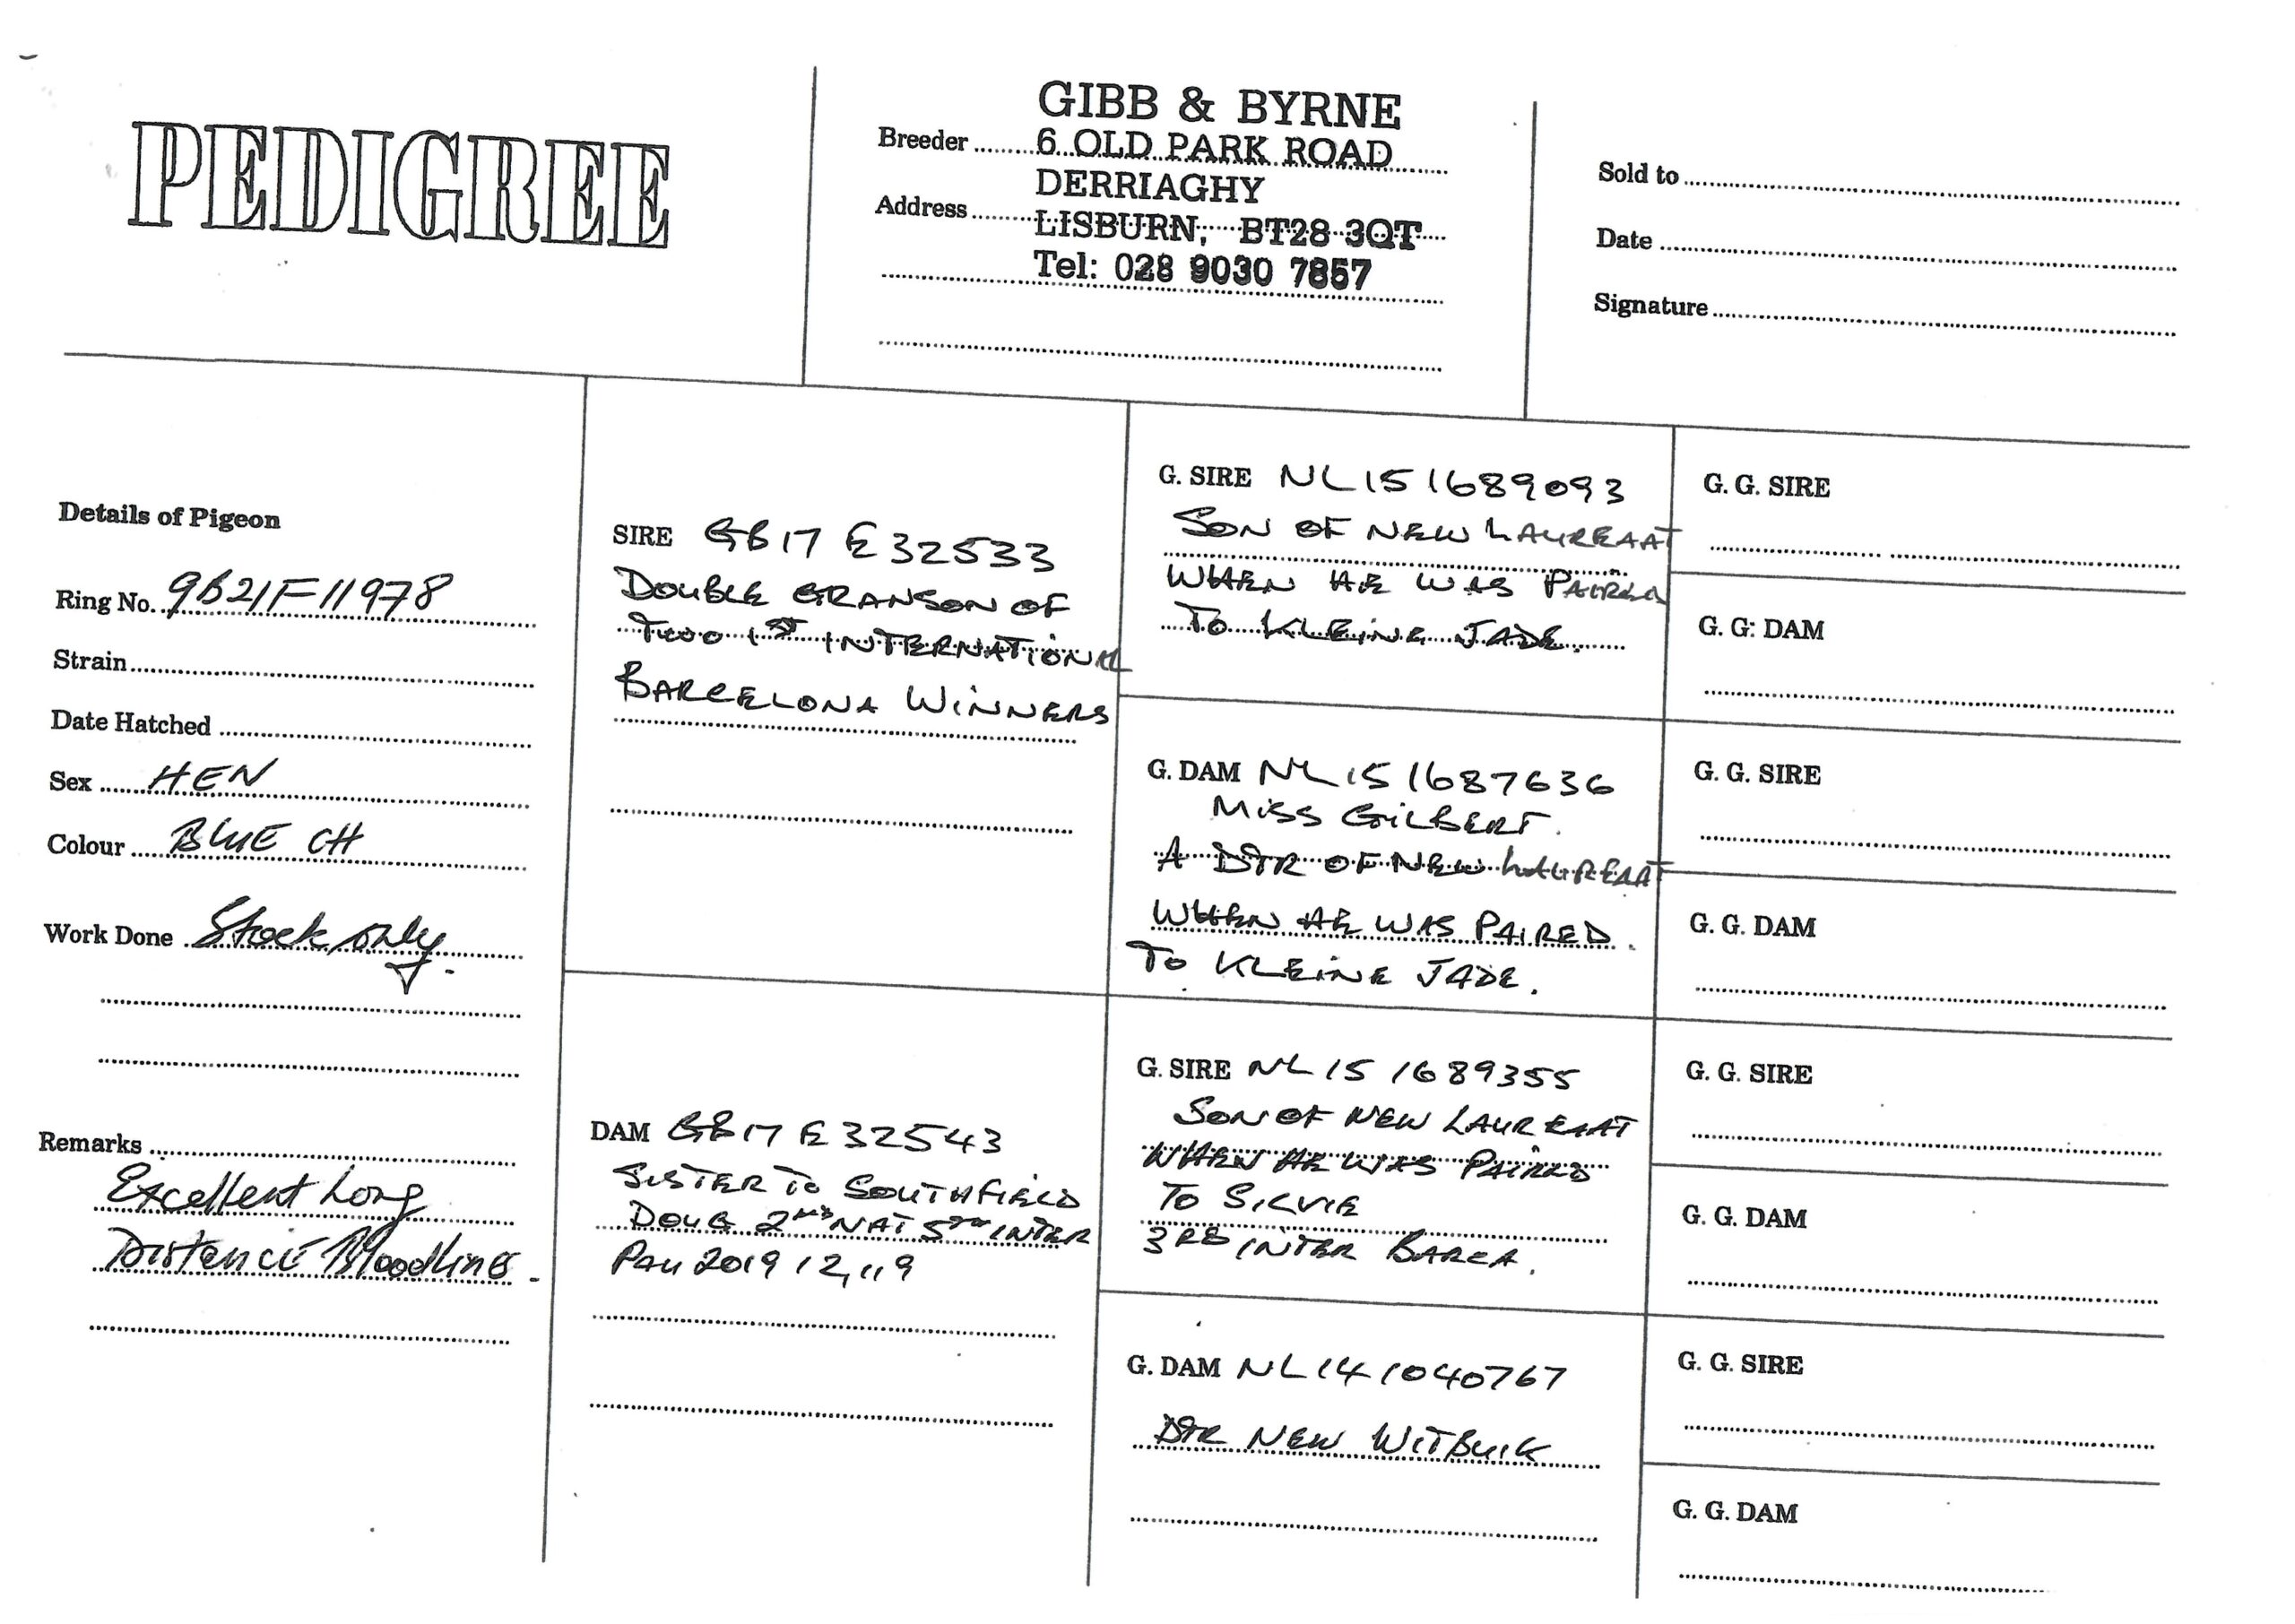 PEDIGREE
GIBB & BYRNE
Breeder 6 OLD PARK ROAD
DERRIAGHY
Address LISBURN, BT28 3QT
Tel: 028 9030 7857
Sold to
Date
Signature
Details of Pigeon
Ring No. GB21F11978
Strain
Date Hatched
Sex HEN
Colour BLUE CH
Work Done Stock only.
Remarks
Excellent Long
Distance Bloodlines.
SIRE GB17 E32533
DOUBLE GRANSON OF
TWO 1ST INTERNATIONAL
BARCELONA WINNERS
DAM GB17 E32543
SISTER TO SOUTHFIELD
DOUG 2ND NAT 5TH INTER
PAU 2019 12,119
G. SIRE NL15 1689093
SON OF NEW LAUREAAT
WHEN HE WAS PAIRED
TO KLEINE JADE.
G. DAM NL15 1687636
MISS GILBERT.
A DTR OF NEW LAUREAAT
WHEN HE WAS PAIRED.
TO KLEINE JADE.
G. SIRE NL15 1689355
SON OF NEW LAUREAAT
WHEN HE WAS PAIRED
TO SILVIE
3RD INTER BARCA.
G. DAM NL14 1040767
DTR NEW WITBUIK
G. G. SIRE
G. G: DAM
G. G. SIRE
G. G. DAM
G. G. SIRE
G. G. DAM
G. G. SIRE
G. G. DAM